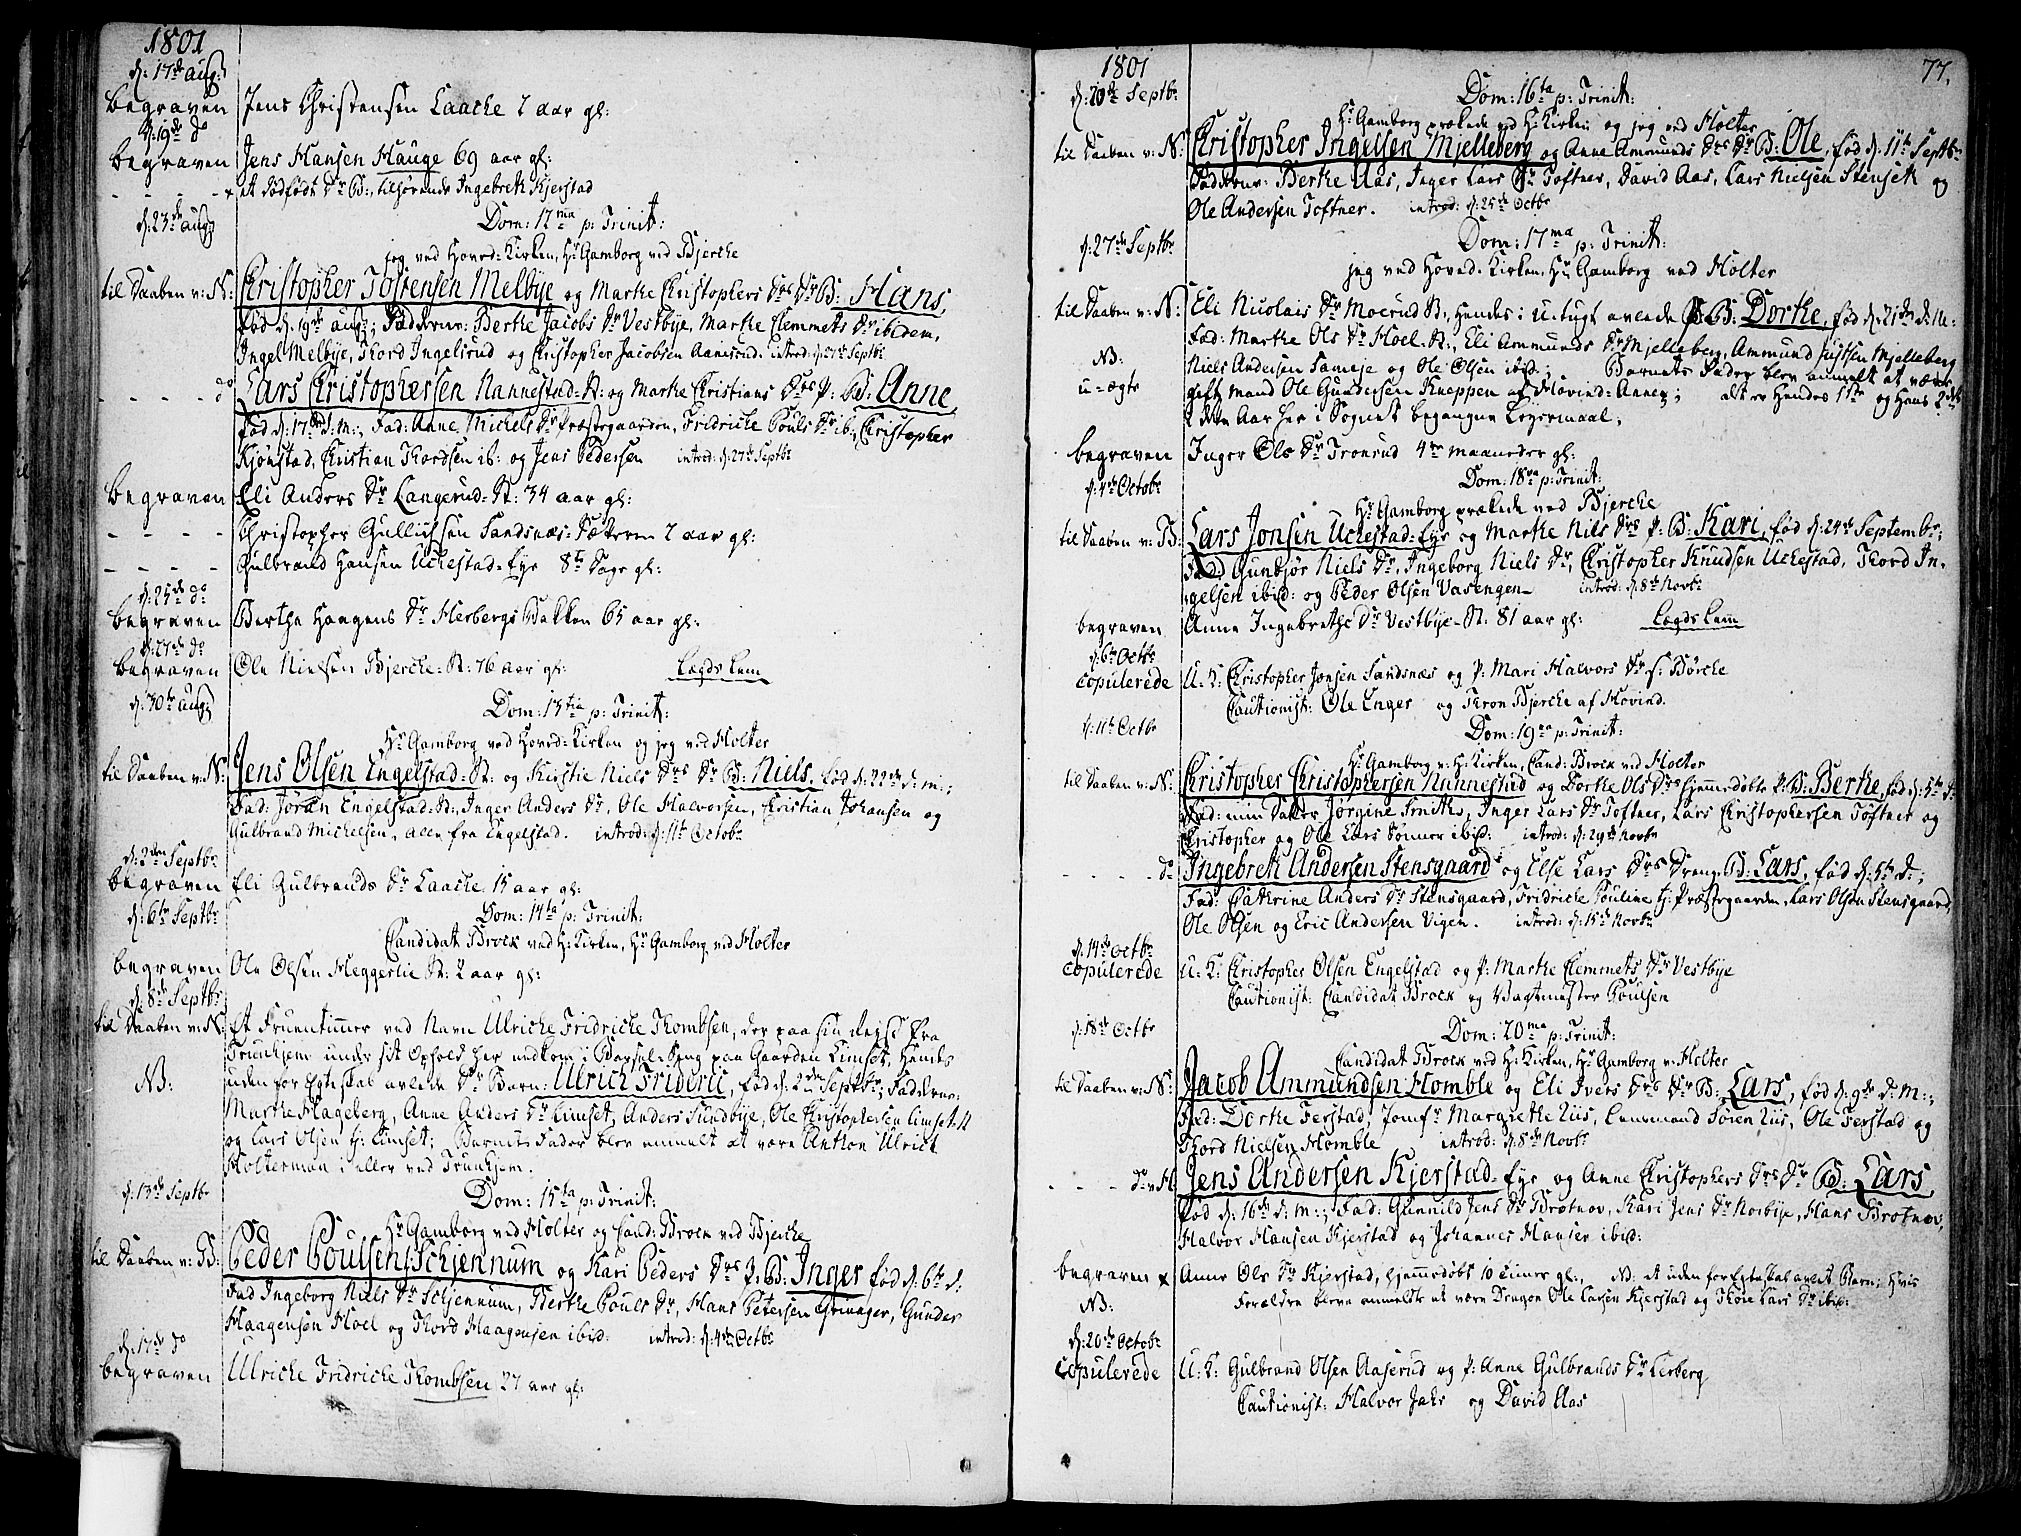 1801
d: 17de aug:
begraven Jens Christensen Laache 2 aar gl:
d: 19de do
begraven Jens Hansen Hauge 69 aar gl:
- - - - et dødfødt Dr B:, tilhørende Ingebret Kjerstad
d: 23de aug: Dom: 12ma p: Trinit:
jeg ved Hoved-Kirken, Hr Gamborg ved Bjerche
til Daaben v: N: Christopher Tostensen Melbye og Marthe Christophers Drs Dr B: Hans,
fød d: 19de aug:; Fadderne: Berthe Jacobs Dr Vestbye, Marthe Clemmets Dr ibidem,
Ingel Melbye, Thord Ingelsrud og Christopher Jacobsen Aamsrud. introd: d: 27de Septbr
- - - - - do Lars Christophersen Nannestad-St: og Marthe Christians Drs P: B: Anne,
fød d: 17de d: m:; Fad: Anne Michels Dr Præstegaarden, Fridriche Pouls Dr ib:, Christopher
Kjønstad, Christian Thordsen ib: og Jens Pedersen introd: d: 27de Septbr
begraven Eli Anders Dr Langerud-St: 34 aar gl:
- - - - Christopher Gullichsen Sandsnæs-Sæteren 2 aar gl:
- - - - Gulbrand Hansen Uchestad-Eye 8te Dage gl:
d: 25de do
begraven Berthe Haagens Dr Herbergs Bakken 65 aar gl:
d: 27de do
begraven Ole Nielsen Bjerche-St: 76 aar gl: Lægds Lem
d: 30te aug: Dom: 13tia p: Trinit:
Hr Gamborg ved Hoved-Kirken og jeg ved Holter
til Daaben v: N: Jens Olsen Engelstad-St: og Kirstie Niels Drs Dr B: Niels, fød d: 22de d: m:;
Fad: Jøran Engelstad-St:, Inger Anders Dr, Ole Halvorsen, Christian Johansen og
Gulbrand Michelsen, alle fra Engelstad. introd: d: 11te Octobr
d: 2den Septbr
begraven Eli Gulbrands Dr Laache 15 aar gl:
d: 6te Septbr Dom: 14ta p: Trinit:
Candidat Brock ved H: Kirken, Hr Gamborg ved Holter
begraven Ole Olsen Heggerlie St: 2 aar gl:
d: 8de Septbr
til Daaben v: N: Et Fruentimmer ved Navn Ulriche Fridriche Thombsen, der paa sin Rejse fra
Trunhjem under sit Ophold her nedkom i Barsel-Seng paa Gaarden Limset, hendes
NB: uden for Egteskab avlede Dr Barn: Ulrich Frideric, fød d: 2den Septbr; Fadderne:
Marthe Hageberg, Anne Anders Dr Limset, Anders Sundbye, Ole Christophersen Limset-St
og Lars Olsen tj: Limset; Barnets Fader blev anmelt at være Anthon Ulrich
Holterman i eller ved Trunhjem.
d: 13de Septbr Dom: 15ta p: Trinit:
Hr Gamborg ved Holter og Cand: Brock ved Bjerche
til Daaben v: B: Peder Poulsen Schjennum og Kari Peders Drs P: B: Inger fød d: 6te d:
Fad Ingeborg Niels Dr Schjennum, Berthe Pouls Dr, Hans Petersen Grinager, Gunder
Haagensen Hoel og Thord Haagensen ibid: introd: d: 4de Octbr
d: 17de do
begraven Ulriche Fridriche Thombsen 27 aar gl:
1801 77.
d: 20de Septbr Dom: 16ta p: Trinit:
Hr Gamborg prækede ved H: Kirken og jeg ved Holter
til Daaben v: N: Christopher Ingelsen Mjelleberg og Anne Ammunds Drs Dr B: Ole, fød d: 11te Septbr
Fadderne: Berthe Aas, Inger Lars Dr Toftner, David Aas, Lars Nielsen Stenseth og
Ole Andersen Toftner. introd: d: 25de Octbr
d: 27de Septbr Dom: 17ma p: Trinit:
jeg ved Hoved-Kirken, Hr Gamborg ved Holter
til Daaben v: N: Eli Nicolais Dr Moerud St:, hendes i Utugt avlede P: B: Dorthe, fød d: 21de d: M:
Fad: Marthe Ols Dr Hoel-St:, Eli Ammunds Dr Mjelleberg, Ammund Justsen Mjelleberg
NB: Niels Andersen Sameje og Ole Olsen ibid:; Barnets Fader blev anmelt at være
u-ægte gift mand Ole Gundersen Kneppen af Hovind-Annex; alt er hendes 1ste og hans 2det
i dette Aar her i Sognet begangne Lejermaal.
begraven Inger Ols Dr Tronrud 4re maaneder gl:
d: 4de Octobr Dom: 18va p: Trinit:
Hr Gamborg prækede ved Bjerche
til Daaben v: B: Lars Jonsen Uchestad-Eye og Marthe Nils Drs P: B: Kari, fød d: 24de Septembr;
Fad: Gunbjør Niels Dr, Ingeborg Niels Dr, Christopher Knudsen Uchestad, Thord In-
gelsen ibid: og Peder Olsen Vasengen introd: d: 8de Novbr
begraven Anne Ingebrethe Dr Vestbye-St: 81 aar gl: Lægds Lem
d: 6te Octbr
copulerede U: K: Christopher Jonsen Sandsnæs og P: Mari Halvors Dr s: Børche
Cautionist: Ole Enger og Thron Bjerche af Hovind.
d: 11te Octbr Dom: 19na p: Trinit:
Hr Gamborg v: H: Kirken, Cand: Brock ved Holter
til Daaben v: N: Christopher Christophersen Nannestad og Dorthe Ols Drs hjemmedøbte P: B: Berthe, fød d: 5te d:
Fad: min Datter Jørgine Smith, Inger Lars Dr Toftner, Lars Christophersen Toftner og
Christopher og Ole Lars Sønner ibid: introd: d: 29de Novbr
- - - - do Ingebret Andersen Stensgaard og Else Lars Drs Dreng B: Lars, fød d: 5te d:;
Fad: Cathrine Anders Dr Stensgaard, Fridriche Pouline tj: Præstegaarden, Lars Olsen Stensgaard,
Ole Olsen og Eric Andersen Vigen. introd: d: 15de Novbr
d: 14de Octbr
copulerede U: K: Christopher Olsen Engelstad og P: Marthe Clemmets Dr Vestbye
Cautionist: Candidat Brock og Vagtmester Poulsen
d: 18de Octbr Dom: 20ma p: Trinit:
Candidat Brock ved H: Kirken, Hr Gamborg v: Holter
til Daaben v: N: Jacob Ammundsen Homble og Eli Ivers Drs Dr B: Lars, fød d: 9de d: M:;
Fad: Dorthe Ferstad, Jomfr Margrethe Liis, Lensmand Sören Liis, Ole Ferstad og
Thord Nielsen Homble introd: d: 8de Novbr
- - - do v: H Jens Andersen Kjerstad-Eye og Anne Christophers Drs Dr B: Lars,
fød d: 16de d: m:; Fad: Gunnild Jens Dr Brotnov, Kari Jens Dr Norbye, Hans Brotnov,
Halvor Hansen Kjerstad og Johannes Hansen ibid:
begraven Anne Ols Dr Kjerstad, hjemmedøbt 10 Timer gl:, NB: et uden for Egteskab avlet Barn; hvis
NB: Forældre bleve anmeldte at være Dragon Ole Larsen Kjerstad og Thore Lars Dr ibid:
d: 20de Octobr
copulerede U: K: Gulbrand Olsen Aaserud og P: Anne Gulbrands Dr Lerberg
Cautionist: Halvor Jahr og David Aas